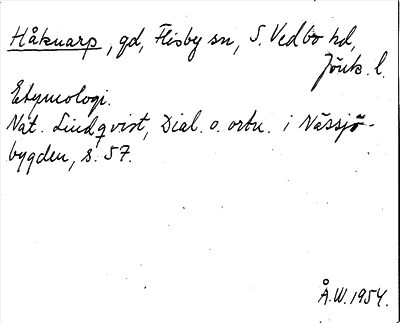 Håknarp, gd, Flisby sn, S. Vedbo hd,
Jönk. l.
Etymologi.
Nat. Lindqvist, Dial. o. ortn. i Nässjö-
bygden, s. 57.
Å.W. 1954.